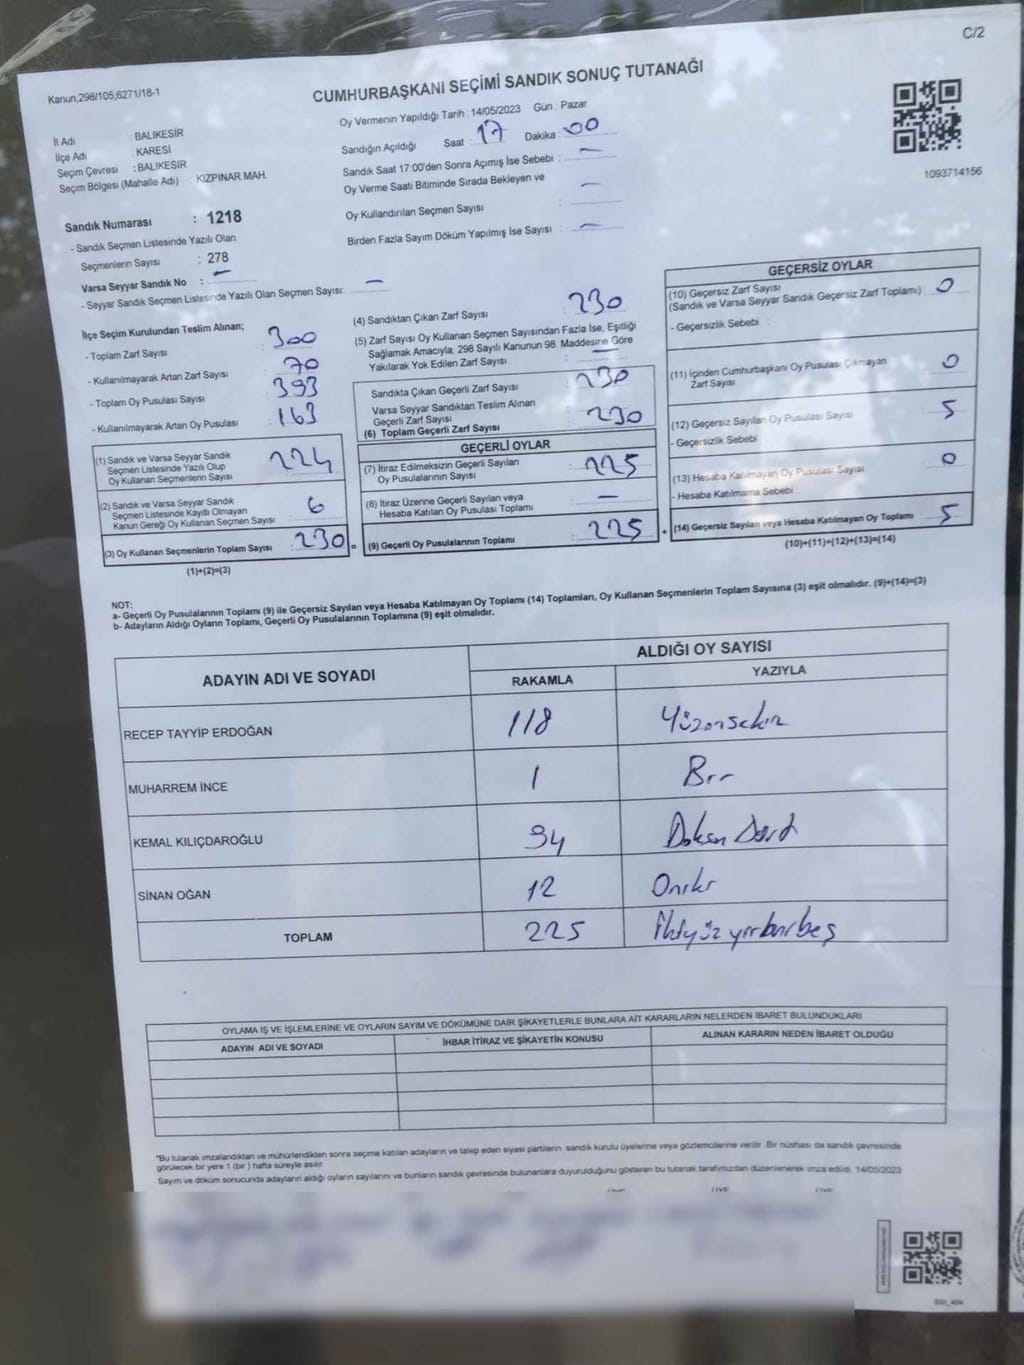 C/2
Kanun;298/105,6271/18-1
CUMHURBAŞKANI SEÇİMİ SANDIK SONUÇ TUTANAĞI
Oy Vermenin Yapıldığı Tarih : 14/05/2023 Gün : Pazar
İl Adı BALIKESİR
İlçe Adı : KARESİ
Seçim Çevresi : BALIKESİR
Seçim Bölgesi (Mahalle Adı) KIZPINAR MAH.
Sandığın Açıldığı Saat 17 Dakika : 00
Sandık Saat 17:00'den Sonra Açımış İse Sebebi : —
Oy Verme Saati Bitiminde Sırada Bekleyen ve
Oy Kullandırılan Seçmen Sayısı : —
Birden Fazla Sayım Döküm Yapılmış İse Sayısı : —
1093714156
Sandık Numarası : 1218
- Sandık Seçmen Listesinde Yazılı Olan
Seçmenlerin Sayısı : 278
Varsa Seyyar Sandık No : —
- Seyyar Sandık Seçmen Listesinde Yazılı Olan Seçmen Sayısı: —
İlçe Seçim Kurulundan Teslim Alınan;
- Toplam Zarf Sayısı : 300
- Kullanılmayarak Artan Zarf Sayısı : 70
- Toplam Oy Pusulası Sayısı : 393
- Kullanılmayarak Artan Oy Pusulası : 163
(1) Sandık ve Varsa Seyyar Sandık
Seçmen Listesinde Yazılı Olup
Oy Kullanan Seçmenlerin Sayısı : 224
(2) Sandık ve Varsa Seyyar Sandık
Seçmen Listesinde Kayıtlı Olmayan
Kanun Gereği Oy Kullanan Seçmen Sayısı : 6
(3) Oy Kullanan Seçmenlerin Toplam Sayısı : 230 =
(1)+(2)=(3)
(4) Sandıktan Çıkan Zarf Sayısı : 230
(5) Zarf Sayısı Oy Kullanan Seçmen Sayısından Fazla İse, Eşitliği
Sağlamak Amacıyla, 298 Sayılı Kanunun 98. Maddesine Göre
Yakılarak Yok Edilen Zarf Sayısı : —
Sandıkta Çıkan Geçerli Zarf Sayısı : 230
Varsa Seyyar Sandıktan Teslim Alınan
Geçerli Zarf Sayısı
(6) Toplam Geçerli Zarf Sayısı : 230
GEÇERLİ OYLAR
(7) İtiraz Edilmeksizin Geçerli Sayılan
Oy Pusulalarının Sayısı : 225
(8) İtiraz Üzerine Geçerli Sayılan veya
Hesaba Katılan Oy Pusulası Toplamı : —
(9) Geçerli Oy Pusulalarının Toplamı : 225 +
GEÇERSİZ OYLAR
(10) Geçersiz Zarf Sayısı
(Sandık ve Varsa Seyyar Sandık Geçersiz Zarf Toplamı) : 0
- Geçersizlik Sebebi :
(11) İçinden Cumhurbaşkanı Oy Pusulası Çıkmayan
Zarf Sayısı : 0
(12) Geçersiz Sayılan Oy Pusulası Sayısı : 5
- Geçersizlik Sebebi :
(13) Hesaba Katılmayan Oy Pusulası Sayısı : 0
- Hesaba Katılmama Sebebi :
(14) Geçersiz Sayılan veya Hesaba Katılmayan Oy Toplamı : 5
(10)+(11)+(12)+(13)=(14)
NOT:
a- Geçerli Oy Pusulalarının Toplamı (9) ile Geçersiz Sayılan veya Hesaba Katılmayan Oy Toplamı (14) Toplamları, Oy Kullanan Seçmenlerin Toplam Sayısına (3) eşit olmalıdır. (9)+(14)=(3)
b- Adayların Aldığı Oyların Toplamı, Geçerli Oy Pusulalarının Toplamına (9) eşit olmalıdır.
ADAYIN ADI VE SOYADI
ALDIĞI OY SAYISI
RAKAMLA YAZIYLA
RECEP TAYYİP ERDOĞAN 118 Yüzonsekiz
MUHARREM İNCE 1 Bir
KEMAL KILIÇDAROĞLU 94 Doksan Dört
SİNAN OĞAN 12 Oniki
TOPLAM 225 İkiyüz yirmibeş
OYLAMA İŞ VE İŞLEMLERİNE VE OYLARIN SAYIM VE DÖKÜMÜNE DAİR ŞİKAYETLERLE BUNLARA AİT KARARLARIN NELERDEN İBARET BULUNDUKLARI
ADAYIN ADI VE SOYADI İHBAR İTİRAZ VE ŞİKAYETİN KONUSU ALINAN KARARIN NEDEN İBARET OLDUĞU
*Bu tutanak imzalandıktan ve mühürlendikten sonra seçime katılan adayların ve talep eden siyasi partilerin sandık kurulu üyelerine veya gözlemcilerine verilir. Bir nüshası da sandık çevresinde
görülecek bir yere 1 (bir ) hafta süreyle asılır.
Sayım ve döküm sonucunda adayların aldığı oyların sayılarını ve bunların sandık çevresinde bulunanlara duyurulduğunu gösteren bu tutanak tarafımızdan düzenlenerek imza edildi. 14/05/2023